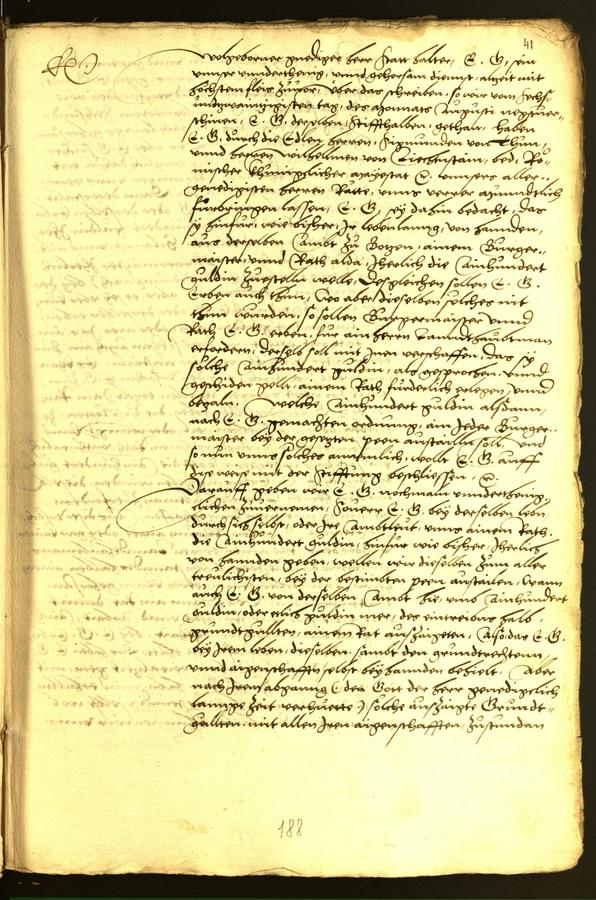 41
Wolgeborner gnediger herr Statthalter, E. G. sein
unnser unnderthenig, unnd gehorsam diennst, alzeit mit
höchstem fleis zuuor, Uber das schreiben, so wir vom Sechs-
undzwainzigisten tag, des Monnats Augusti negstuer-
schinen, E. G. derselben Stifft halben, gethan, haben
E. G. durch die Edlen herren, Sigmunden von Thun,
unnd herren Wilhelmen von Liechtnstain, bed, Rö-
mischer Khunigclicher Mayestat &c. unnsers aller-
genedigisten herren Räte, unns verrer muundtlich
fürbringen lassen, E. G. sey dahin bedacht, das
sy hinfür, wie bisher, Ir lebenlanng, von hannden,
aus derselben Ambt zu Botzen, ainem Burger-
maister, unnd Rath alda, Jherlich die Ainhundert
guldin zuestellen welle, Desgleichen sollen E. G.
Erben auch thun, Wo aber dieselben solches nit
thun wurden, so sollen Burgermaister unnd
Rath E. G. erben, für ain herrn Lanndtshaubtman
erfordern, derselb soll mit Inen verschaffen, das sy
solche Ainhundert guldin, als gesprochen, unnd
geschiden gellt, ainem Rath fürderlich erlegen, unnd
bezaln. Welche Ainhundert guldin alsdann,
nach E. G. gemachten ordnung, ain Jeder Burger-
maister bey der gesezten peen austailn soll, Und
so nun unns solches annemlich, wolt E. G. auff
dise weise mit der Stifftung beschliessen, &c.
Darauff geben wir E. G. nochmaln unnderthenig-
clichen zuuernemen, Souerr E. G. bey derselben leben,
durch sich selbst, oder Ire Ambtleut, unns ainem Rath,
die Ainhundert guldin, hinfür wie bisher, Jherlich
von hannden geben, wellen wir dieselben zum aller
treulichisten, bey der bestimbten peen austailen, Wann
auch E. G. von derselben Ambt hie, umb Ainhundert
guldin, oder etlich guldin mer, des eintreibens halb,
grundtgullten, ainem Rat auszaigeten, Also das E. G.
bey Irem leben, dieselben, sambt den grundtrechten,
unnd aigenschafften, selbst bey hannden behielt. Aber
nach Irem abganng (: den Gott der herr genedigclich
lannge zeit verhuette :) solche auszaigte Grundt-
gullten, mit allen Iren aigenschafften, zustundan
188